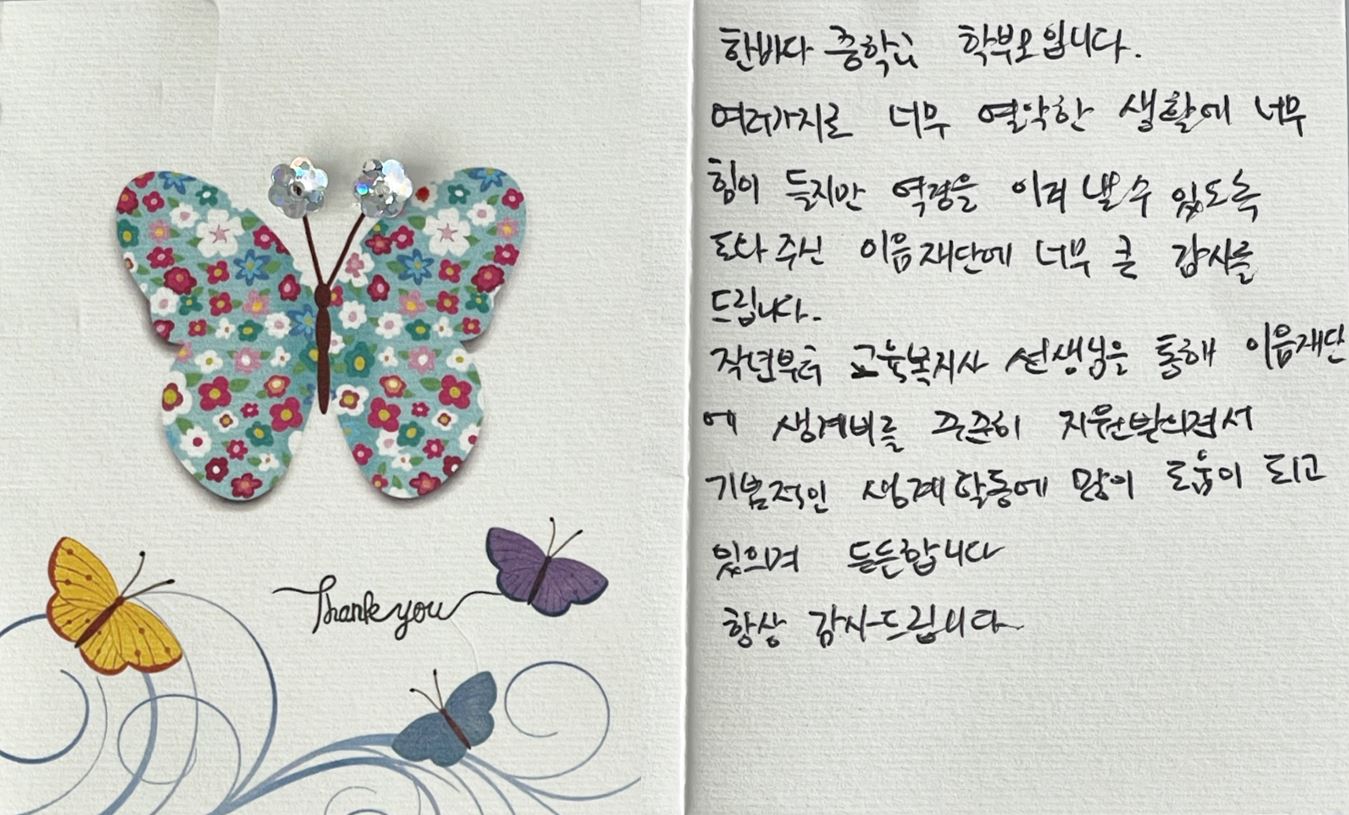 Thank you
한바다 중학교 학부모입니다.
여러가지로 너무 열악한 생활에 너무
힘이 들지만 역경을 이겨 낼 수 있도록
도와 주신 이음재단에 너무 큰 감사를
드립니다.
작년부터 교육복지사 선생님을 통해 이음재단
에 생계비를 꾸준히 지원받으면서
기본적인 생계활동에 많이 도움이 되고
있으며 든든합니다
항상 감사드립니다.